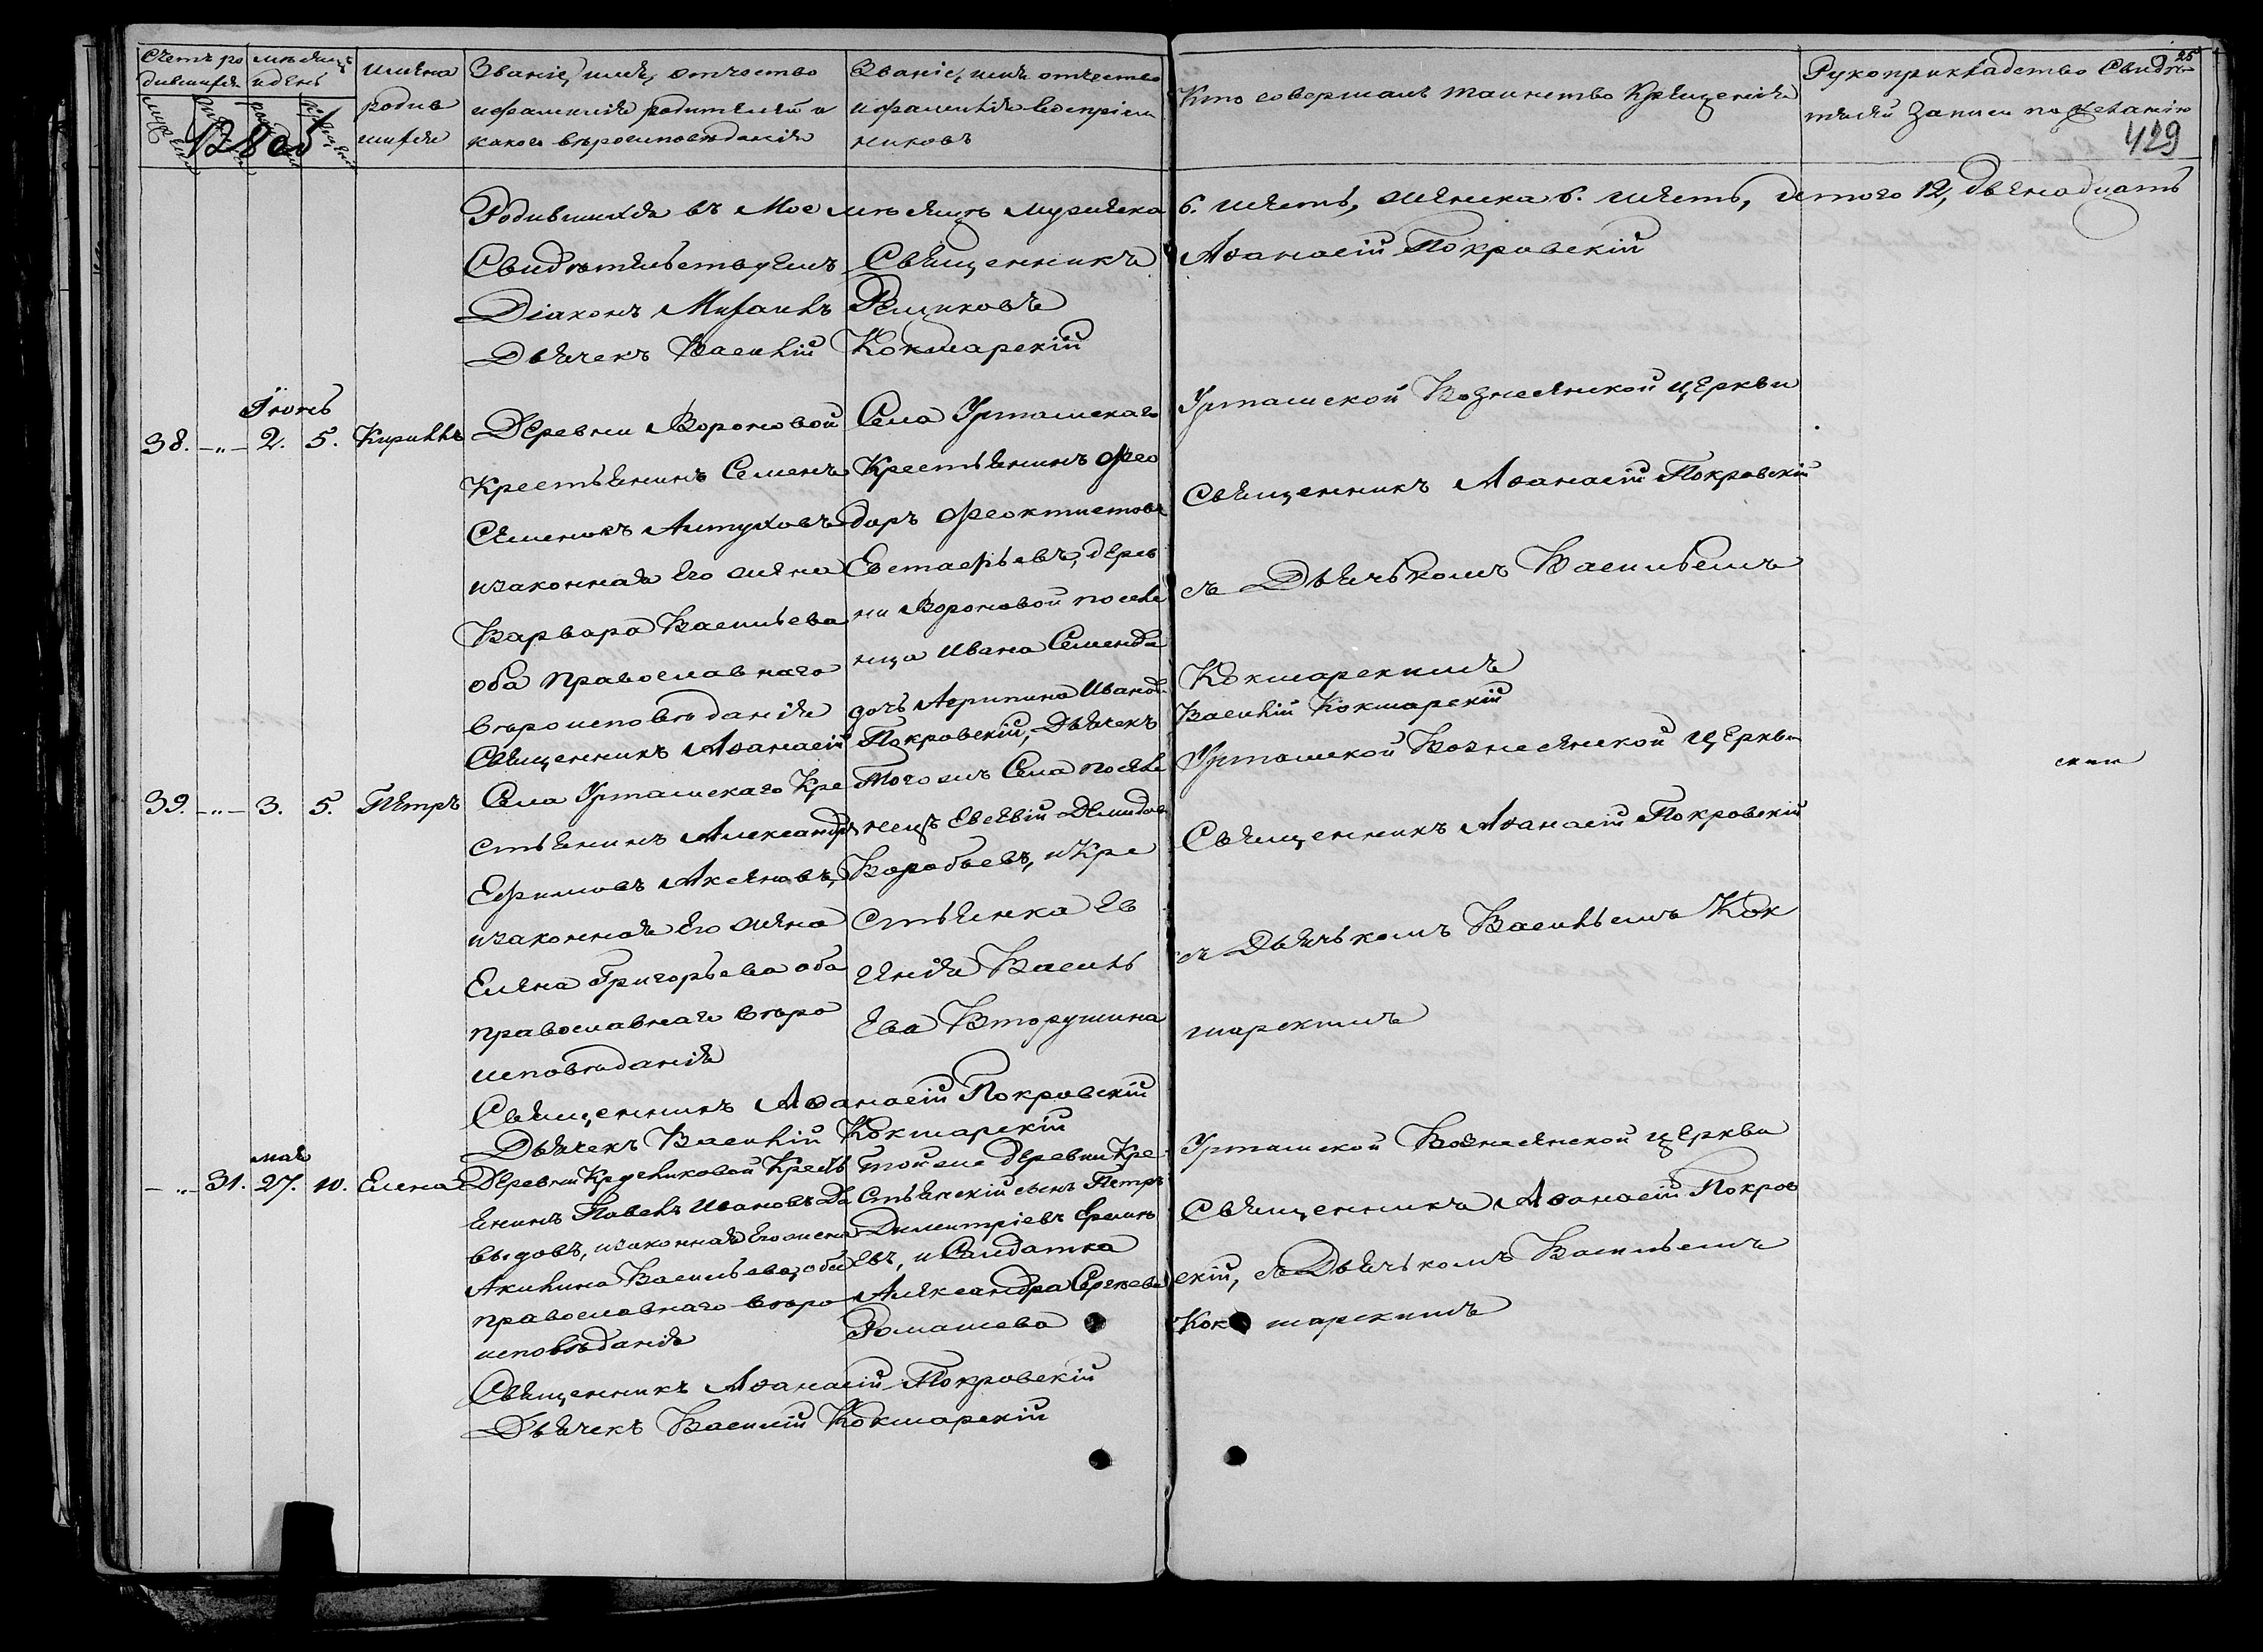 Счетъ ро
дившихся
мѣсяцъ
и день
имена
родив
шихся
Званіе, имя, отчество
и фамилія родителей и
какого вѣроисповѣданія
Званіе, имя отчество
и фамилія воспріем
никовъ
Кто совершалъ таинство Крещенія
Рукоприкладство Свидѣ
телей записи по желанію
25
429
Родившихся въ Мае мѣсяцѣ мужеска 6. шесть, женска 6. шесть, итого 12, двенадцать
Свидѣтельствуемъ Священникъ Аѳанасій Покровскій
Діаконъ Михаилъ Рещиковъ
Дьячекъ Василій Кокшарскій
Іюнь
38. -„- 2. 5. Кириллъ
Деревни Вороновой
Крестьянинъ Семенъ
Семеновъ Алтуховъ
и законная Его жена
Варвара Васильева
оба православнаго
вѣроисповѣданія
Села Урташскаго
Крестьянинъ Фео
доръ Феоктистовъ
Евстафьевъ, дерев
ни Вороновой посел
нца Ивана Семенова
дочь Агрипина Иванова
Урташской Вознесенской церкви
Священникъ Аѳанасій Покровскій
съ Дьячькомъ Васильемъ
Кокшарскимъ
Священникъ Аѳанасій Покровскій, Дьячекъ Василій Кокшарскій
39. -„- 3. 5. Петръ
Села Урташскаго Кре
стьянинъ Александръ
Ефимовъ Аксеновъ,
и законная Его жена
Елена Григорьева оба
православнаго вѣро
исповѣданія
Того жъ Села поселе
нецъ Евсевій Демидовъ
Воробьевъ, и Кре
стьянка Ев
сенія Василь
Ева Вторушина
Урташской Вознесенской церкви
Священникъ Аѳанасій Покровскій
съ Дьячькомъ Васильемъ Кок
шарскимъ
Священникъ Аѳанасій Покровскій
Дьячекъ Василій Кокшарскій
мая
-„- 31. 27. 10. Елена
Деревни Кругликовой Кресть
янинъ Павелъ Ивановъ Да
выдовъ, и законная Его жена
Акилина Васильева, оба
православнаго вѣро
исповѣданія
той же деревни Кре
стьянскій сынъ Петръ
Димитріевъ Ереме
евъ, и Солдатка
Александра Сергѣева
Ромашева
Урташской Вознесенской церкви
Священникъ Аѳанасій Покров
скій, съ Дьячькомъ Васильемъ
Кокшарскимъ
Священникъ Аѳанасій Покровскій
Дьячекъ Василій Кокшарскій